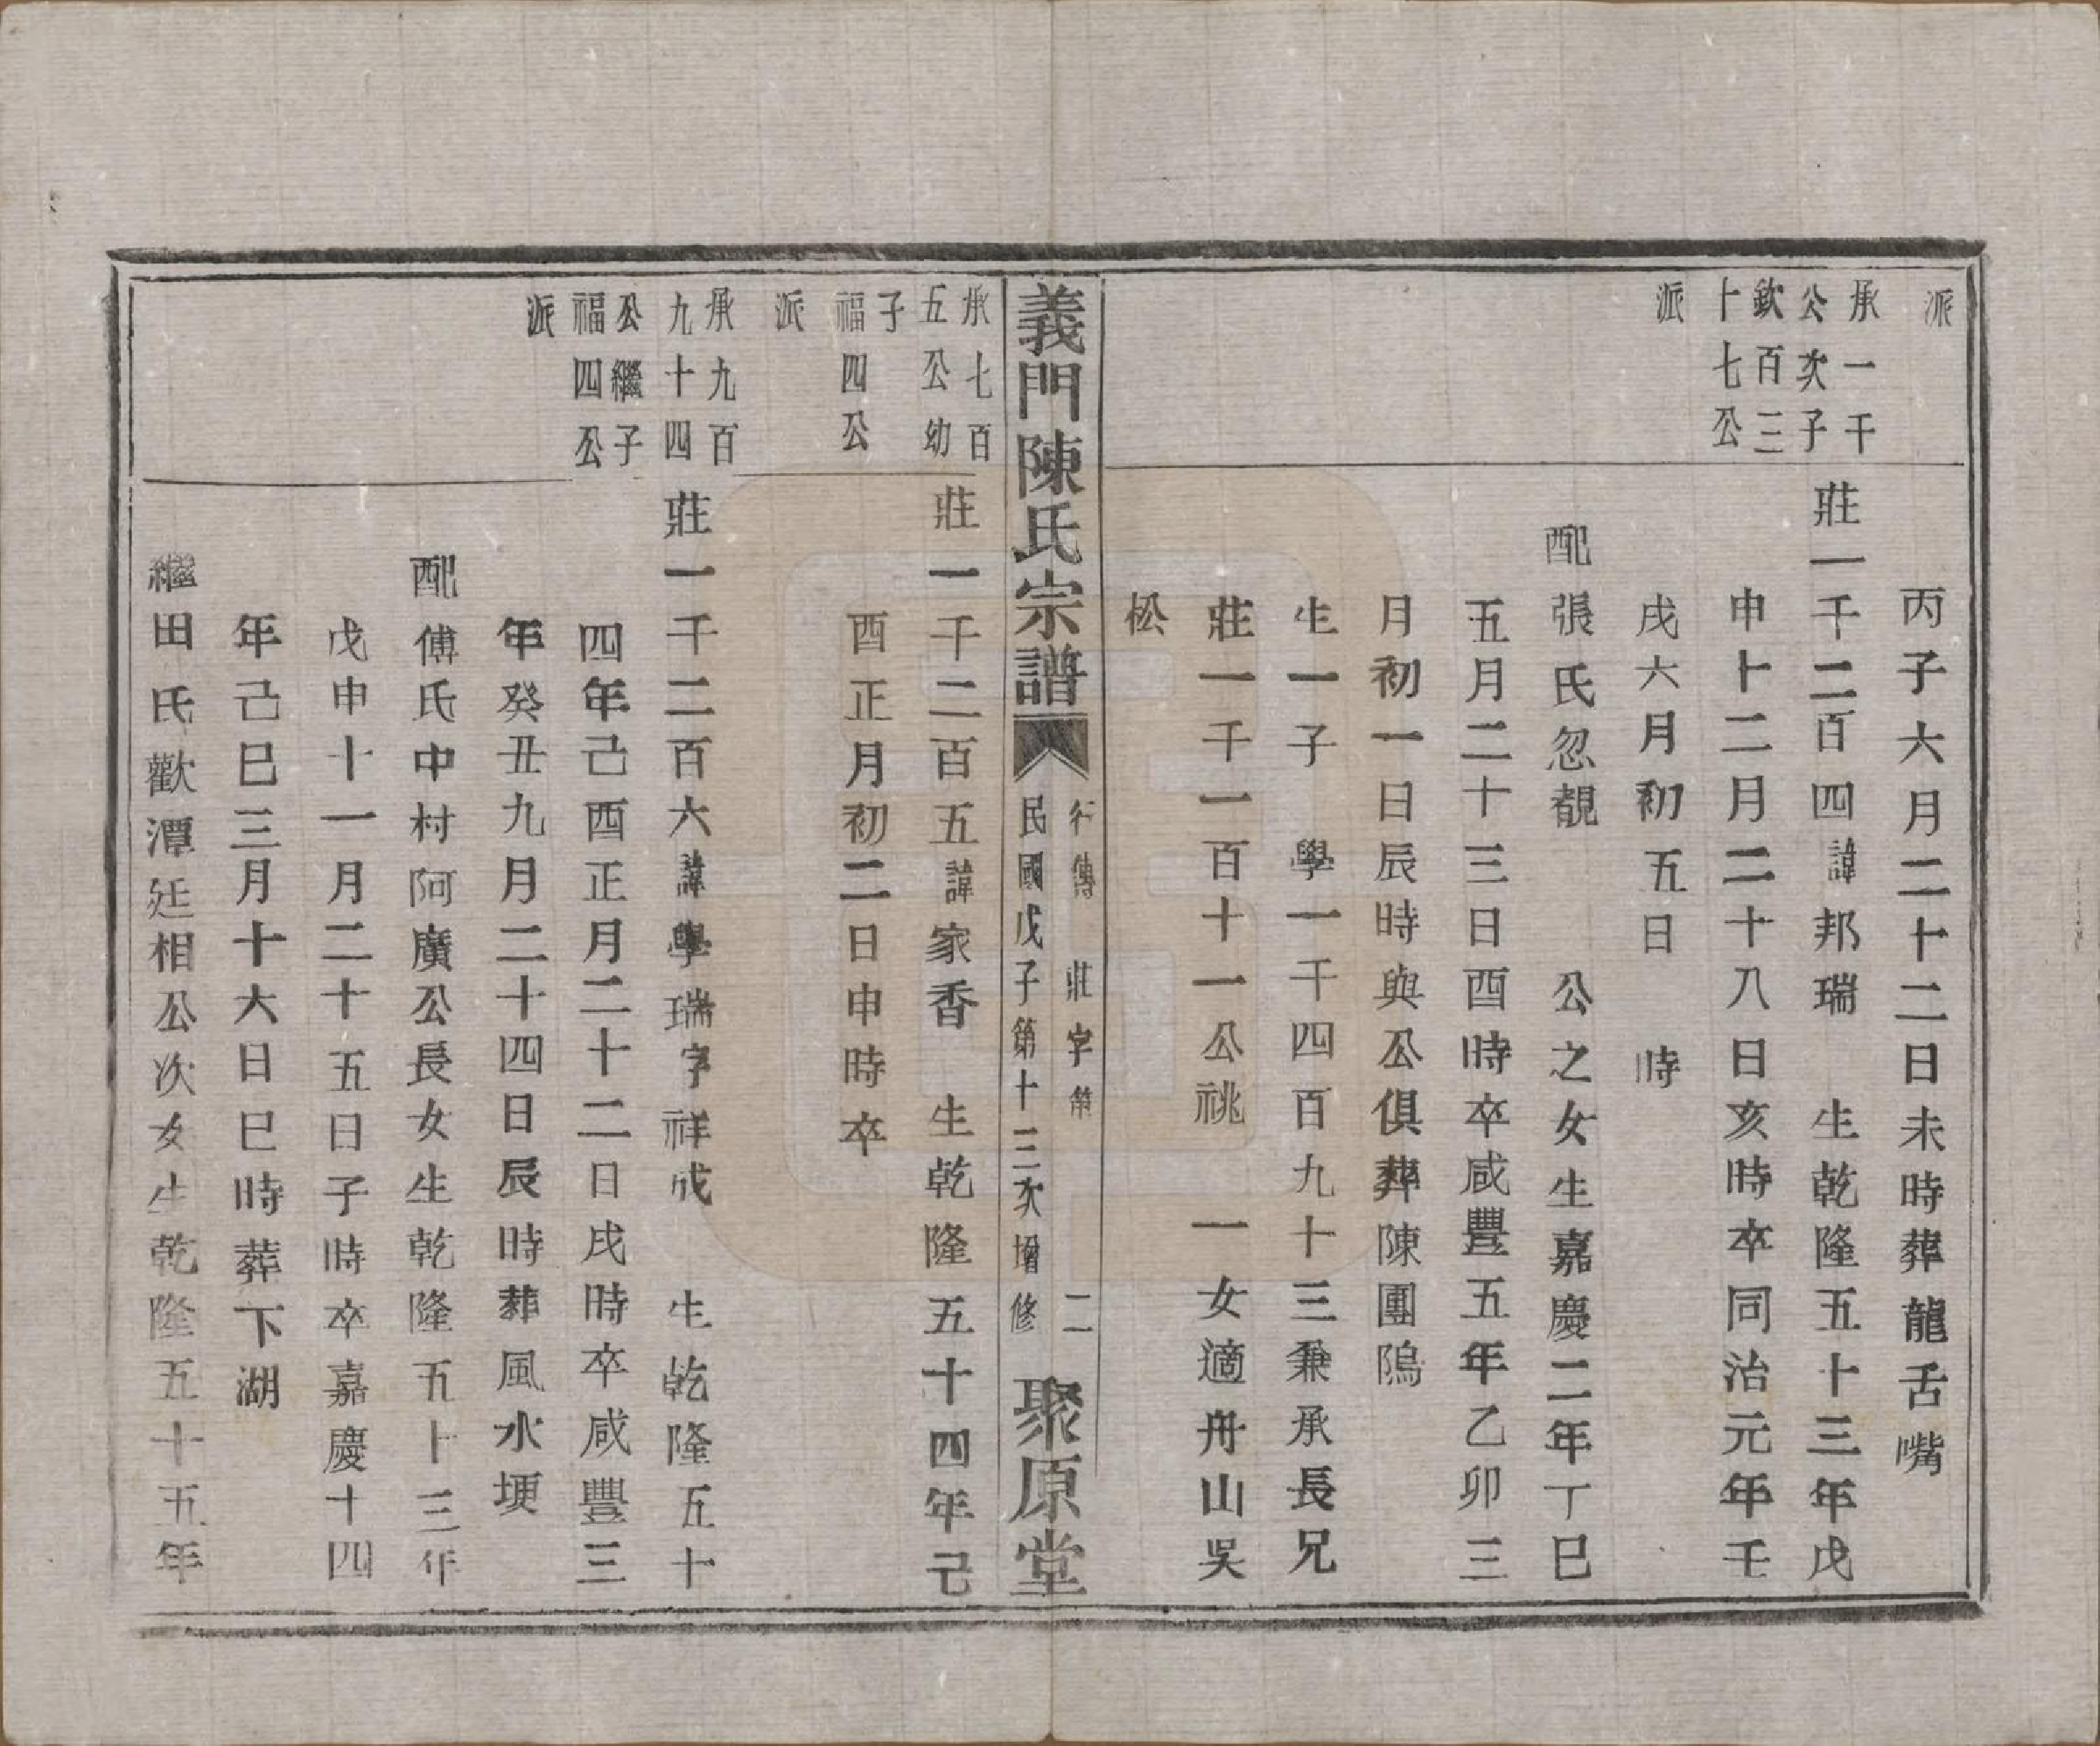 派
丙子六月二十二日未時葬龍舌嘴
承一千
公次子
欽百三
十七公
派
莊一千二百四諱邦瑞　生乾隆五十三年戊
申十二月二十八日亥時卒同治元年壬
戌六月初五日　時
配張氏忽覩　　公之女生嘉慶二年丁巳
五月二十三日酉時卒咸豐五年乙卯三
月初一日辰時與公俱葬陳團隖
生一子　學一千四百九十三兼承長兄
莊一千一百十一公祧　一女適舟山吳
松
義門陳氏宗譜
行傳　莊字第　二
民國戊子第十三次增修
聚原堂
承七百
五公幼
子
福四公
派
莊一千二百五諱家香　生乾隆五十四年己
酉正月初二日申時卒
承九百
九十四
公繼子
福四公
派
莊一千二百六諱學瑞字祥成　生乾隆五十
四年己酉正月二十二日戌時卒咸豐三
年癸丑九月二十四日辰時葬風水埂
配傅氏中村阿廣公長女生乾隆五十三年
戊申十一月二十五日子時卒嘉慶十四
年己巳三月十六日巳時葬下湖
繼田氏歡潭廷相公次女生乾隆五十五年